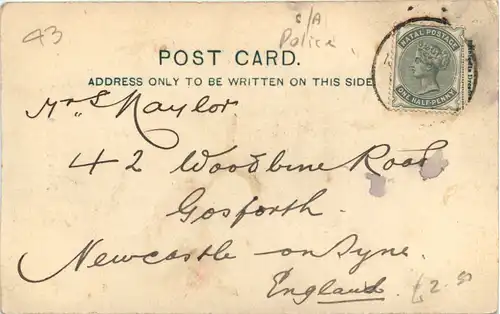 43
c/A
Police
POST CARD.
ADDRESS ONLY TO BE WRITTEN ON THIS SIDE
NATAL POSTAGE
ONE HALF-PENNY
Mrs Naylor
42 Woodbine Road
Gosforth.
Newcastle on Tyne.
England.
£2.50